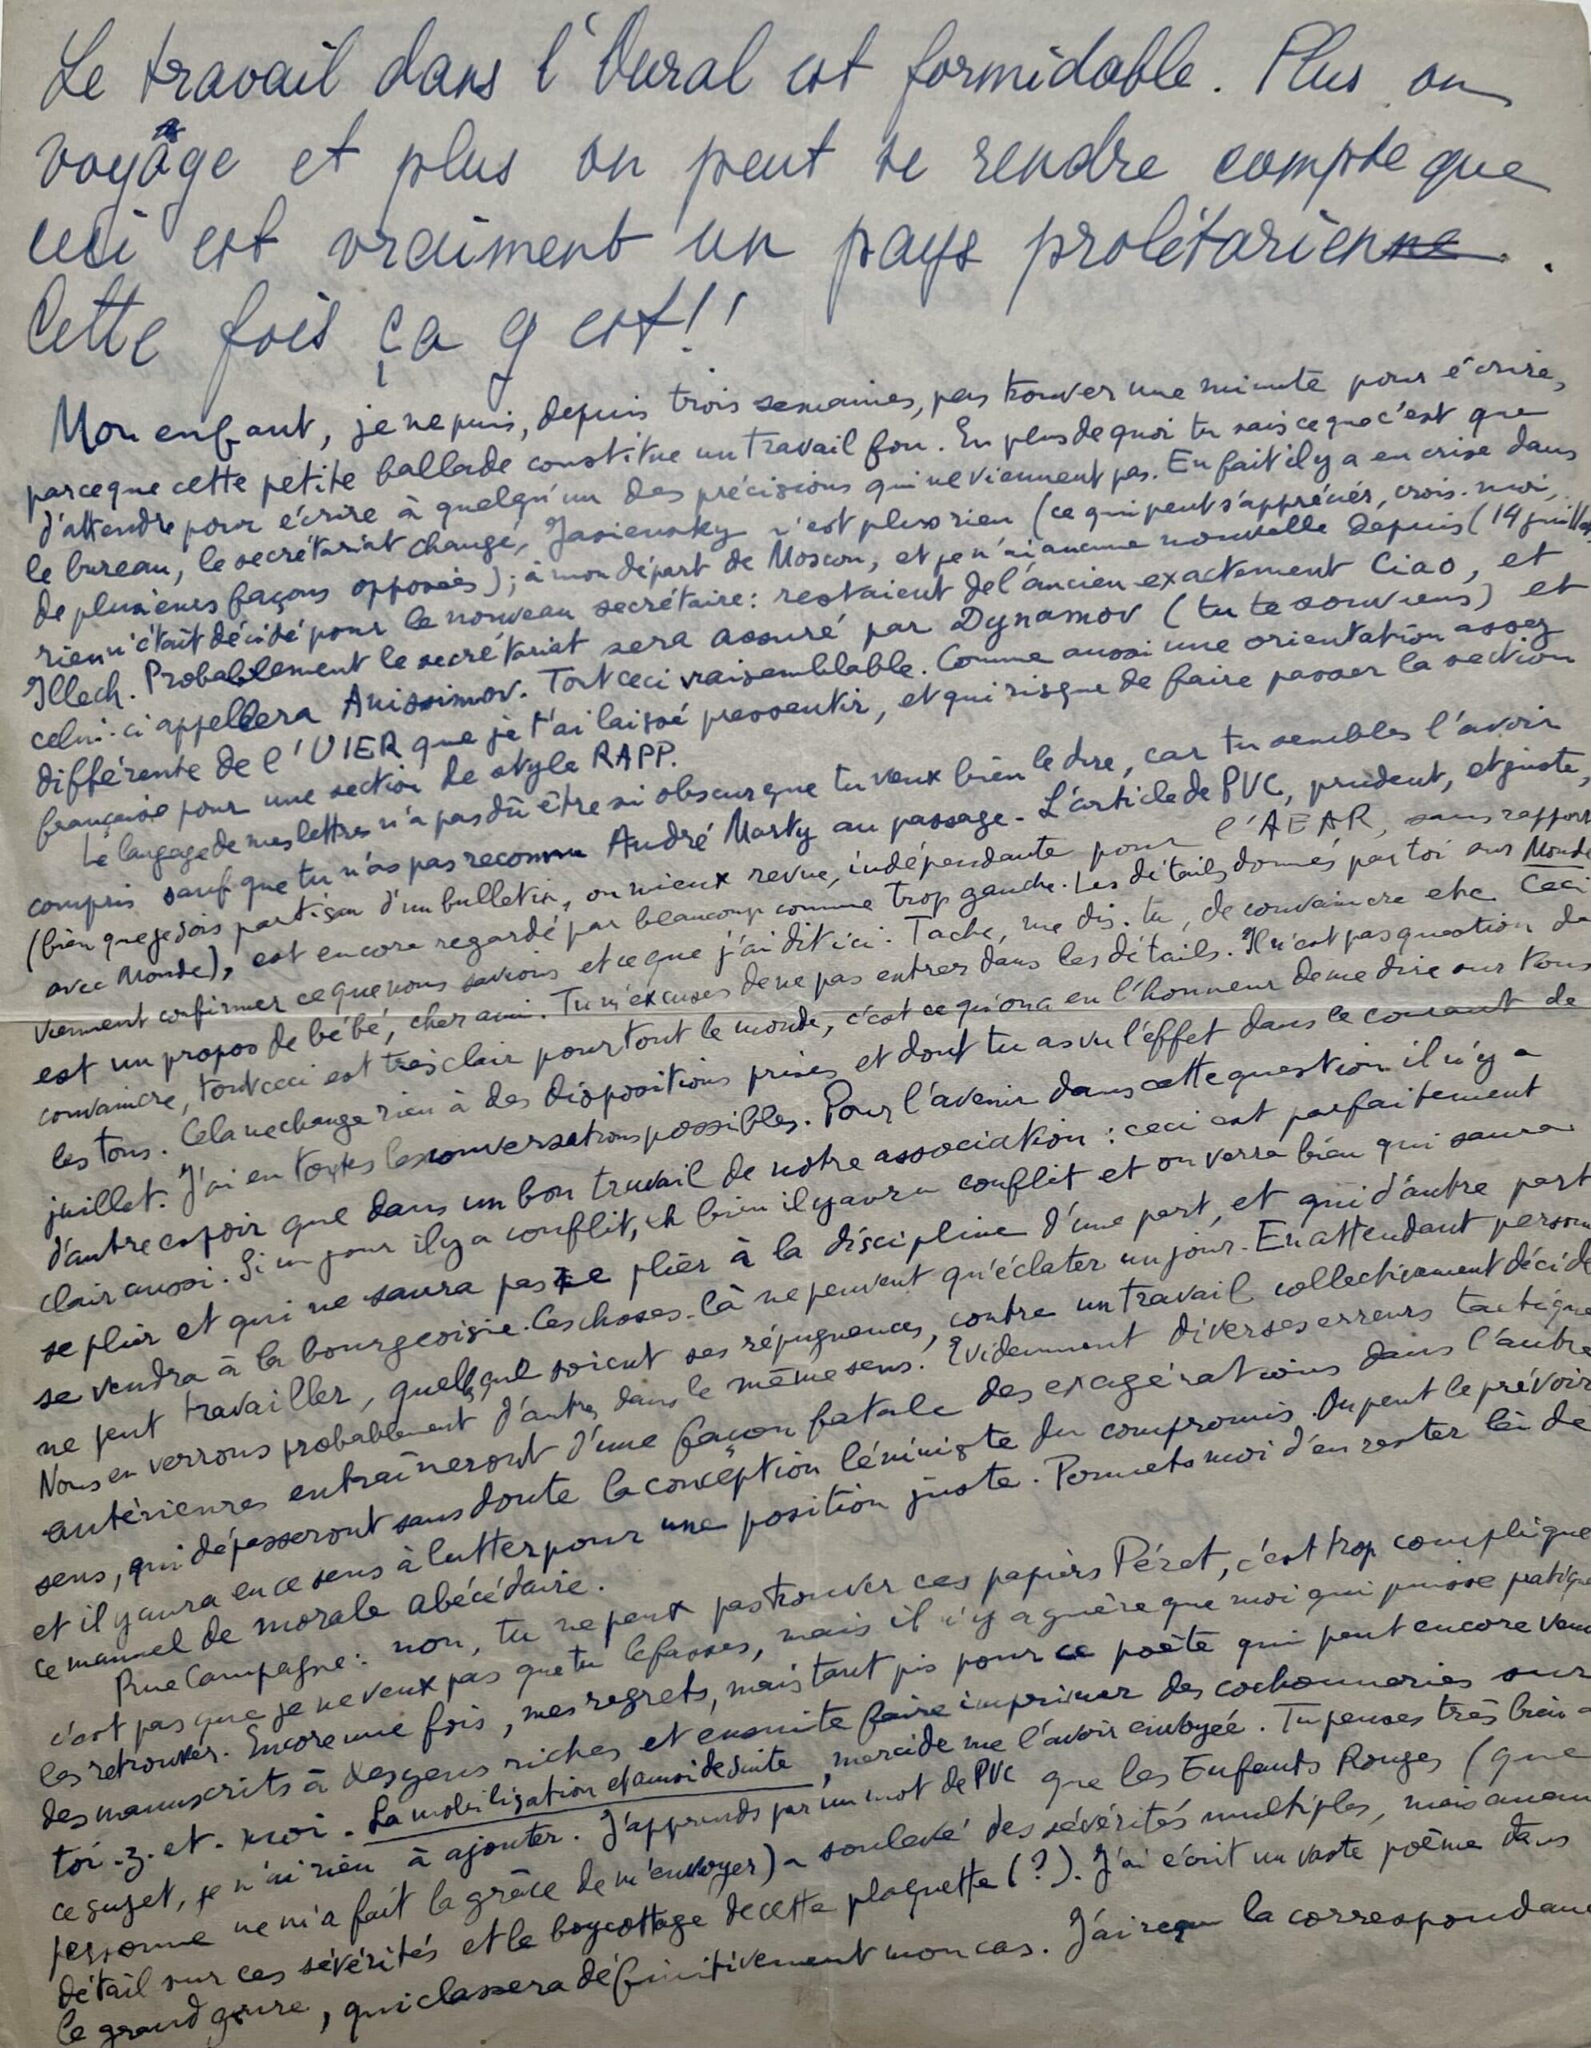 Le travail dans l'Oural est formidable. Plus on
voyage et plus on peut se rendre compte que
ceci est vraiment un pays prolétarien.
Cette fois ça y est!!
Mon enfant, je ne puis, depuis trois semaines, pas trouver une minute pour écrire,
parce que cette petite ballade constitue un travail fou. En plus de quoi tu sais ce que c'est que
d'attendre pour écrire à quelqu'un des précisions qui ne viennent pas. En fait il y a eu crise dans
le bureau, le secrétariat changé, Jasiensky n'est plus rien (ce qui peut s'apprécier, crois-moi,
de plusieurs façons opposées); à mon départ de Moscou, et je n'ai aucune nouvelle depuis (14 juillet)
rien n'était décidé pour le nouveau secrétaire: restaient de l'ancien exactement Ciao, et
Illech. Probablement le secrétariat sera assuré par Dynamov (tu te souviens) et
celui-ci appellera Anissimov. Tout ceci vraisemblable. Comme aussi une orientation assez
différente de l'UIER que je t'ai laissé pressentir, et qui risque de faire passer la section
française pour une section de style RAPP.
Le langage de mes lettres n'a pas dû être si obscur que tu veux bien le dire, car tu sembles l'avoir
compris sauf que tu n'as pas reconnu André Marty au passage. L'article de PVC, prudent, et juste,
(bien que je sois partisan d'un bulletin, ou mieux revue, indépendante pour l'AEAR, sans rapport
avec Monde), est encore regardé par beaucoup comme trop gauche. Les détails donnés par toi sur Monde
viennent confirmer ce que nous savions et ce que j'ai dit ici. Tache, me dis-tu, de convaincre etc. Ceci
est un propos de bébé, cher ami. Tu m'excuses de ne pas entrer dans les détails. Il n'est pas question de
convaincre, tout ceci est très clair pour tout le monde, c'est ce qu'on a eu l'honneur de me dire sur tous
les tons. Cela ne change rien à des dispositions prises et dont tu as vu l'effet dans le courant de
juillet. J'ai eu toutes les conversations possibles. Pour l'avenir dans cette question il n'y a
d'autre espoir que dans un bon travail de notre association: ceci est parfaitement
clair aussi. Si un jour il y a conflit, eh bien il y aura conflit et on verra bien qui saura
se plier et qui ne saura pas se plier à la discipline d'une part, et qui d'autre part
se vendra à la bourgeoisie. Ces choses-là ne peuvent qu'éclater un jour. En attendant personne
ne peut travailler, quelles que soient ses répugnances, contre un travail collectivement décidé
Nous en verrons probablement d'autres dans le même sens. Evidemment diverses erreurs tactiques
antérieures entraîneront d'une façon fatale des exagérations dans l'autre
sens, qui dépasseront sans doute la conception léniniste du compromis. On peut le prévoir
et il y aura en ce sens à lutter pour une position juste. Permets moi d'en rester là de
ce manuel de morale abécédaire.
Rue Campagne: non, tu ne peux pas trouver ces papiers Péret, c'est trop compliqué
c'est pas que je ne veux pas que tu le fasses, mais il n'y a guère que moi qui puisse pratiquement
les retrouver. Encore une fois, mes regrets, mais tant pis pour ce poète qui peut encore vendre
des manuscrits à des gens riches et ensuite faire imprimer des cochonneries sur
toi-z-et-moi. La mobilisation et ainsi de suite, merci de me l'avoir envoyée. Tu penses très bien à
ce sujet, je n'ai rien à ajouter. J'apprends par un mot de PVC que les Enfants Rouges (que
personne ne m'a fait la grâce de m'envoyer) a soulevé des sévérités multiples, mais aucun
détail sur ces sévérités et le boycottage de cette plaquette (?). J'ai écrit un vaste poème dans
le grand genre, qui classera définitivement mon cas. J'ai reçu la correspondance